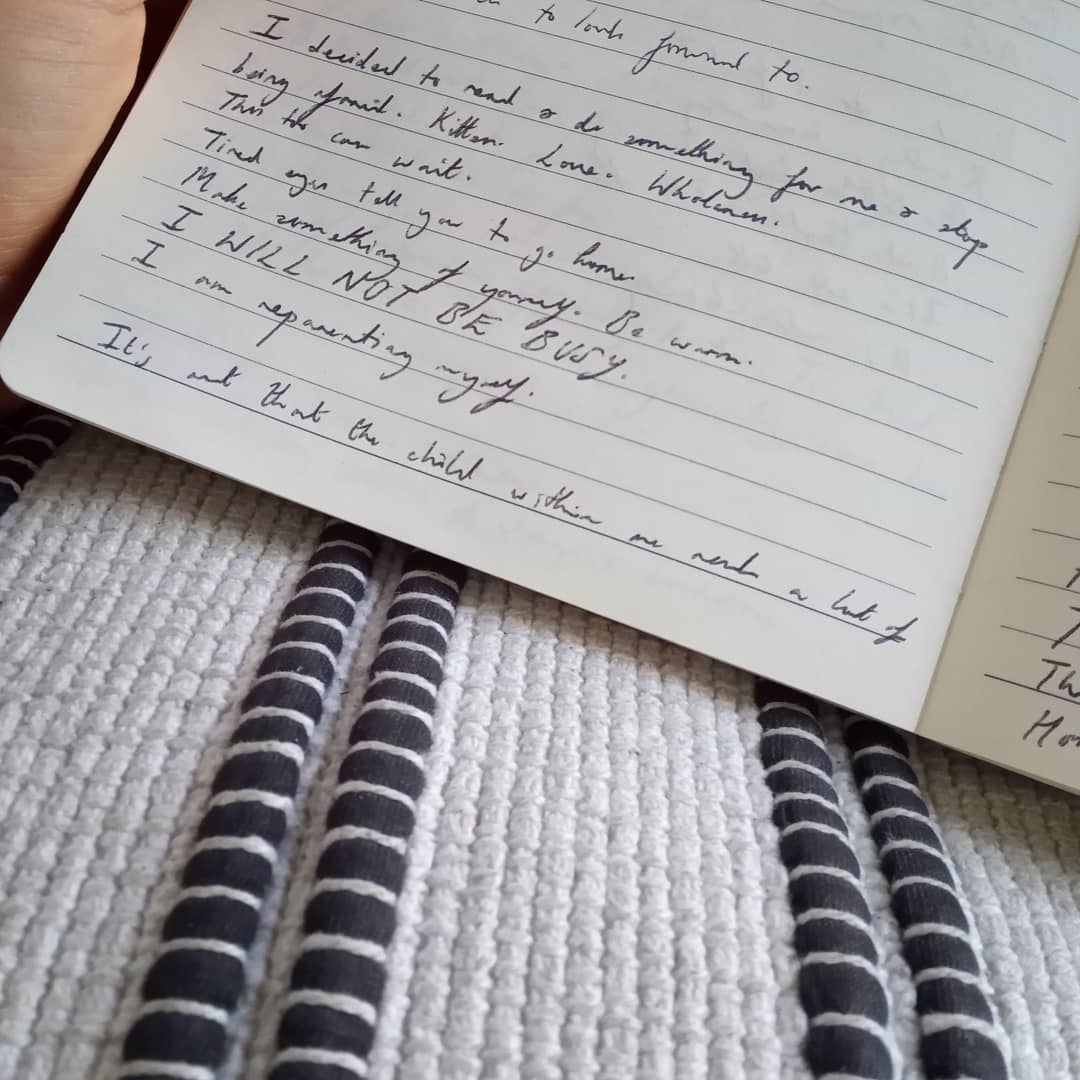 to look forward to.
I decided to read & do something for me & stop
being afraid. Kitten. Love. Wholeness.
This too can wait.
Tired eyes tell you to go home
Make something of yourself. Be warm.
I WILL NOT BE BUSY.
I am reparenting myself.
It's not that the child within me needs a lot of
Th
Ho